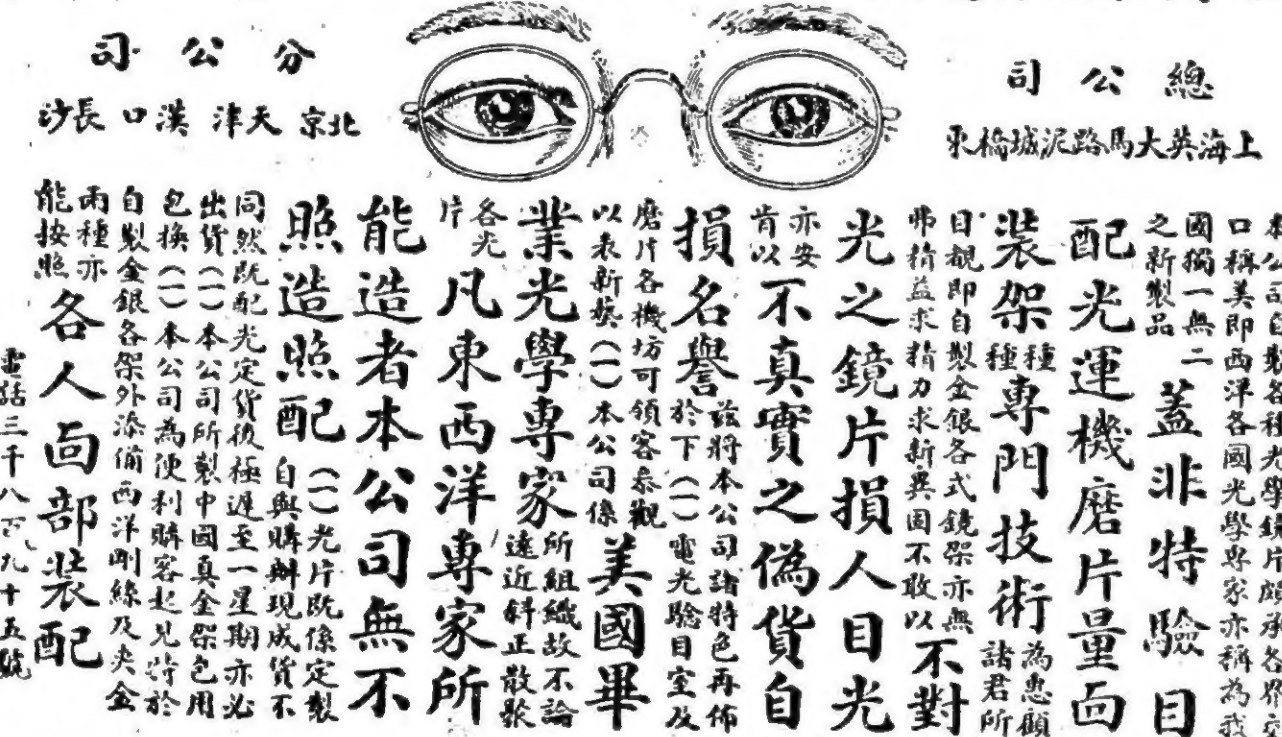 總公司
上海英大馬路泥城橋東
分公司
北京 天津 漢口 長沙
本公司自製各種光學鏡片頗承各界交
口稱美即西洋各國光學專家亦稱為我
國獨一無二
之新製品
蓋非特驗目
配光運機磨片量面
裝架種種專門技術為惠顧
諸君所
目覩即自製金銀各式鏡架亦無
弗精益求精力求新異固不敢以
不對
光之鏡片損人目光
亦安
肯以
不真實之偽貨自
損名譽茲將本公司諸特色再佈
於下(一)電光驗目室及
磨片各機坊可領客參觀
以表新藝(一)本公司係
美國畢
業光學專家所組織故不論
遠近斜正散聚
各光
片
凡東西洋專家所
能造者本公司無不
照造照配(一)光片既係定製
自與購辦現成貨不
同然既配光定貨後極遲至一星期亦必
出貨(一)本公司所製中國真金架包用
包換(一)本公司為便利購客起見特於
自製金銀各架外添備西洋剛絲及夾金
兩種亦
能按照
各人面部裝配
電話三千八百九十五號